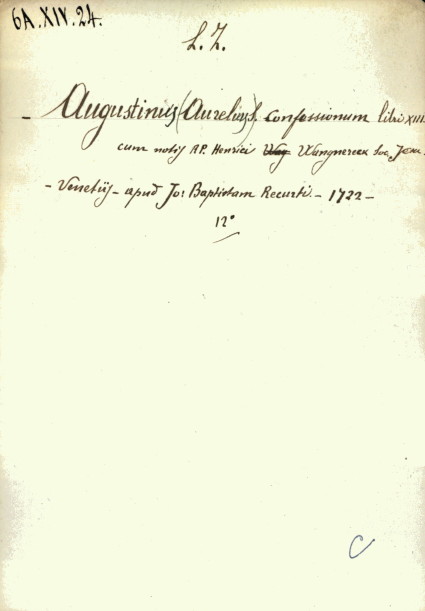 6A.XIV.24.
L. Z.
- Augustinus (Aurelius) S. Confessionum libri XIII.
cum notis RP. Henrici Wag Wangnereck Soc. Jesu.
- Venetijs - apud Jo: Baptistam Recurti. - 1722 -
12°
C